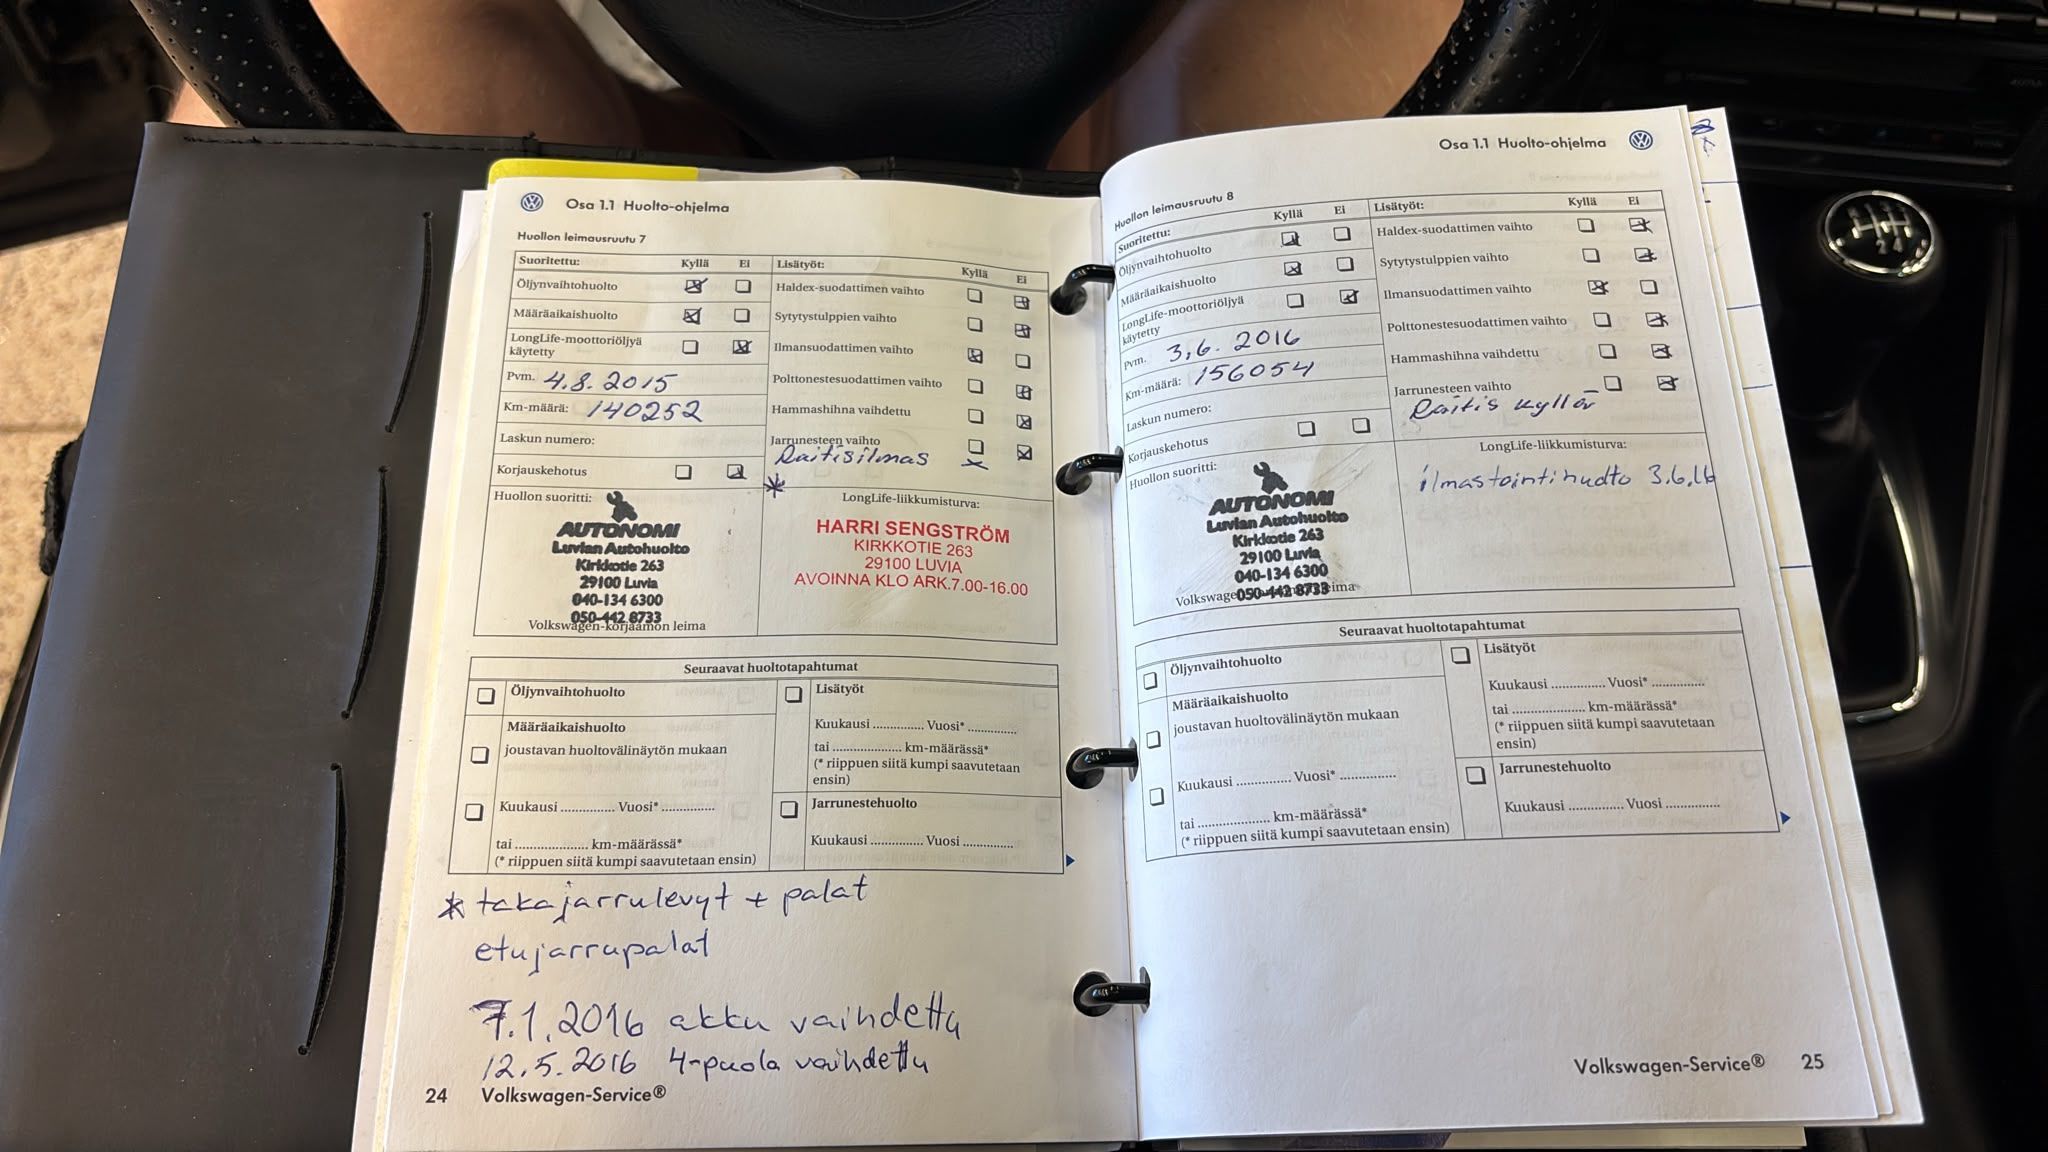 Osa 1.1 Huolto-ohjelma
Huollon leimausruutu 7
Suoritettu: Kyllä Ei
Öljynvaihtohuolto
Määräaikaishuolto
LongLife-moottoriöljyä
käytetty
Pvm. 4.8.2015
Km-määrä: 140252
Laskun numero:
Korjauskehotus
Huollon suoritti:
AUTONOMI
Luvian Autohuolto
Kirkkotie 263
29100 Luvia
040-134 6300
050-442 8733
Volkswagen-korjaamon leima
Lisätyöt: Kyllä Ei
Haldex-suodattimen vaihto
Sytytystulppien vaihto
Ilmansuodattimen vaihto
Polttonestesuodattimen vaihto
Hammashihna vaihdettu
Jarrunesteen vaihto
Raitisilmas
*
LongLife-liikkumisturva:
HARRI SENGSTRÖM
KIRKKOTIE 263
29100 LUVIA
AVOINNA KLO ARK.7.00-16.00
Seuraavat huoltotapahtumat
Öljynvaihtohuolto
Määräaikaishuolto
joustavan huoltovälinäytön mukaan
Kuukausi .............. Vuosi* ..............
tai .................... km-määrässä*
(* riippuen siitä kumpi saavutetaan ensin)
Lisätyöt
Kuukausi .............. Vuosi* ..............
tai .................... km-määrässä*
(* riippuen siitä kumpi saavutetaan
ensin)
Jarrunestehuolto
Kuukausi .............. Vuosi ..............
* takajarrulevyt + palat
etujarrupalat
7.1.2016 akku vaihdettu
12.5.2016 4-puola vaihdettu
24 Volkswagen-Service®
Osa 1.1 Huolto-ohjelma
Huollon leimausruutu 8
Suoritettu: Kyllä Ei
Öljynvaihtohuolto
Määräaikaishuolto
LongLife-moottoriöljyä
käytetty
Pvm. 3.6.2016
Km-määrä: 156054
Laskun numero:
Korjauskehotus
Huollon suoritti:
AUTONOMI
Luvian Autohuolto
Kirkkotie 263
29100 Luvia
040-134 6300
050-442 8733
Lisätyöt: Kyllä Ei
Haldex-suodattimen vaihto
Sytytystulppien vaihto
Ilmansuodattimen vaihto
Polttonestesuodattimen vaihto
Hammashihna vaihdettu
Jarrunesteen vaihto
Raitis kyllä
LongLife-liikkumisturva:
ilmastointihuolto 3.6.16
Seuraavat huoltotapahtumat
Öljynvaihtohuolto
Määräaikaishuolto
joustavan huoltovälinäytön mukaan
Kuukausi .............. Vuosi* ..............
tai .................... km-määrässä*
(* riippuen siitä kumpi saavutetaan ensin)
Lisätyöt
Kuukausi .............. Vuosi* ..............
tai .................... km-määrässä*
(* riippuen siitä kumpi saavutetaan
ensin)
Jarrunestehuolto
Kuukausi .............. Vuosi ..............
Volkswagen-Service® 25